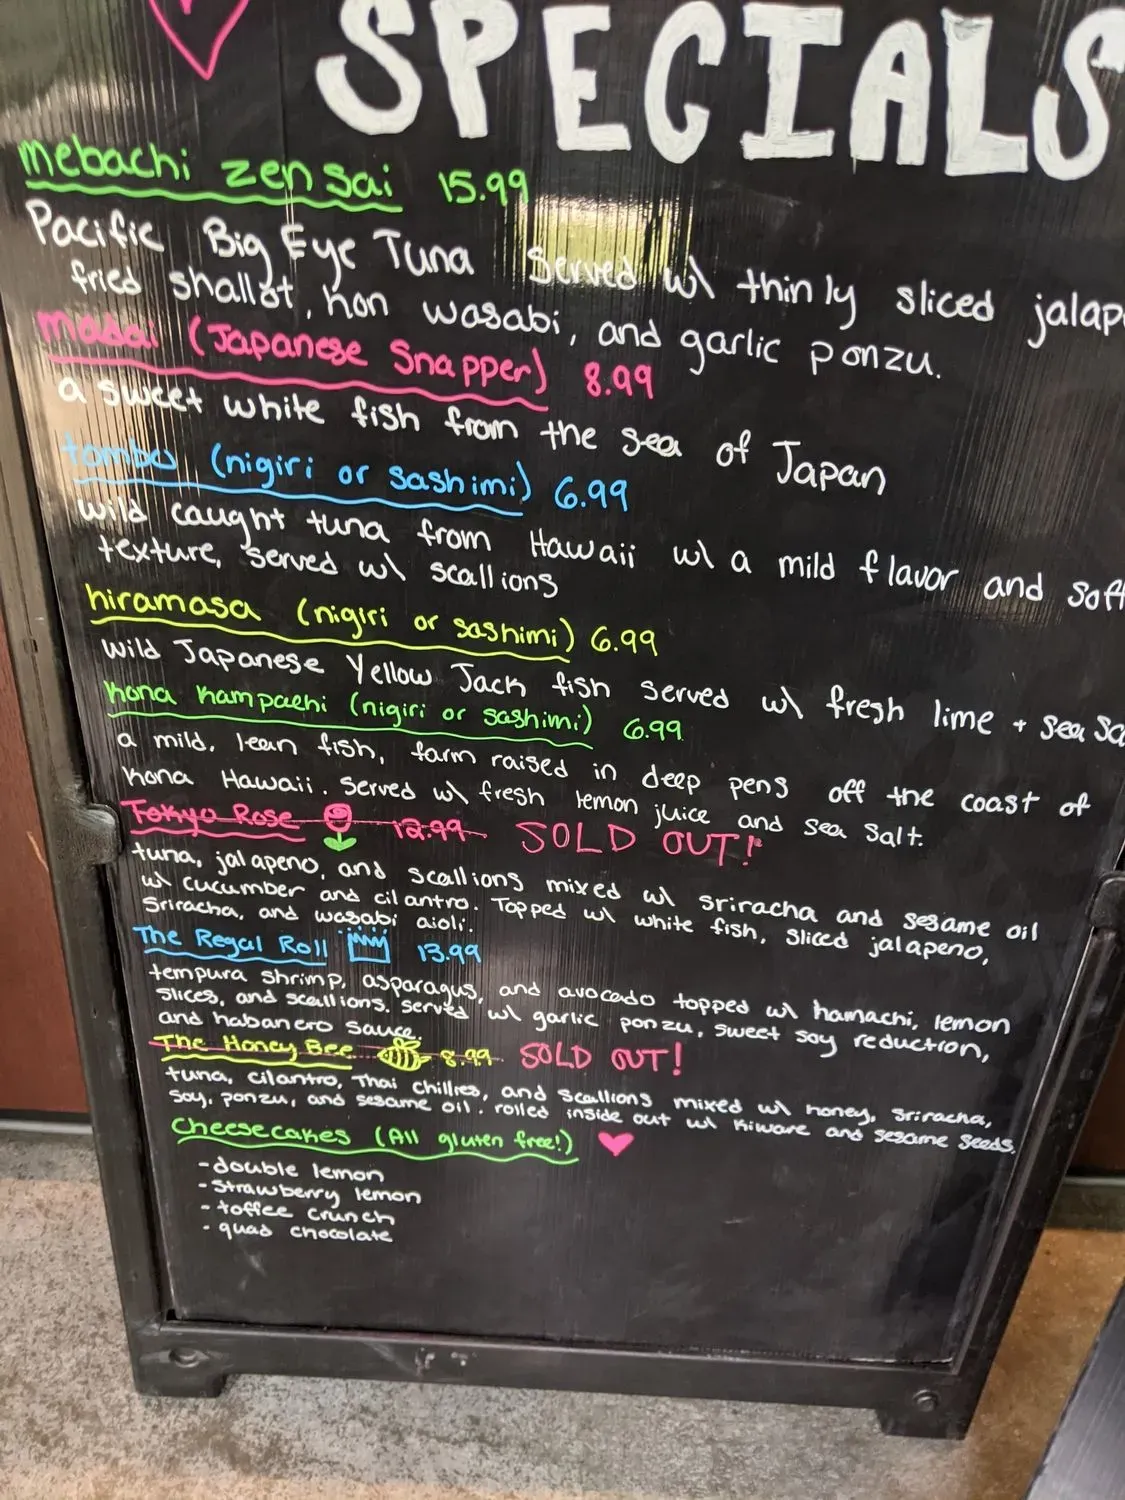 SPECIALS
mebachi zensai 15.99
Pacific Big Eye Tuna served w\ thinly sliced jalap
fried shallot, kon wasabi, and garlic ponzu.
madai (Japanese Snapper) 8.99
a sweet white fish from the sea of Japan
tombo (nigiri or sashimi) 6.99
wild caught tuna from Hawaii w\ a mild flavor and soft
texture, served w\ scallions
hiramasa (nigiri or sashimi) 6.99
wild Japanese Yellow Jack fish served w\ fresh lime + sea sa
kona kampachi (nigiri or sashimi) 6.99
a mild, lean fish, farm raised in deep pens off the coast of
kona Hawaii. served w\ fresh lemon juice and sea salt.
Tokyo Rose 12.99 SOLD OUT!
tuna, jalapeno, and scallions mixed w\ sriracha and sesame oil
w\ cucumber and cilantro. Topped w\ white fish, sliced jalapeno,
Sriracha, and wasabi aioli.
The Regal Roll 13.99
tempura shrimp, asparagus, and avocado topped w\ hamachi, lemon
slices, and scallions. served w\ garlic ponzu, sweet soy reduction,
and habanero sauce.
The Honey Bee 8.99 SOLD OUT!
tuna, cilantro, Thai chillies, and scallions mixed w\ honey, sriracha,
soy, ponzu, and sesame oil. rolled inside out w\ kiware and sesame seeds.
Cheesecakes (All gluten free!)
- double lemon
- strawberry lemon
- toffee crunch
- quad chocolate